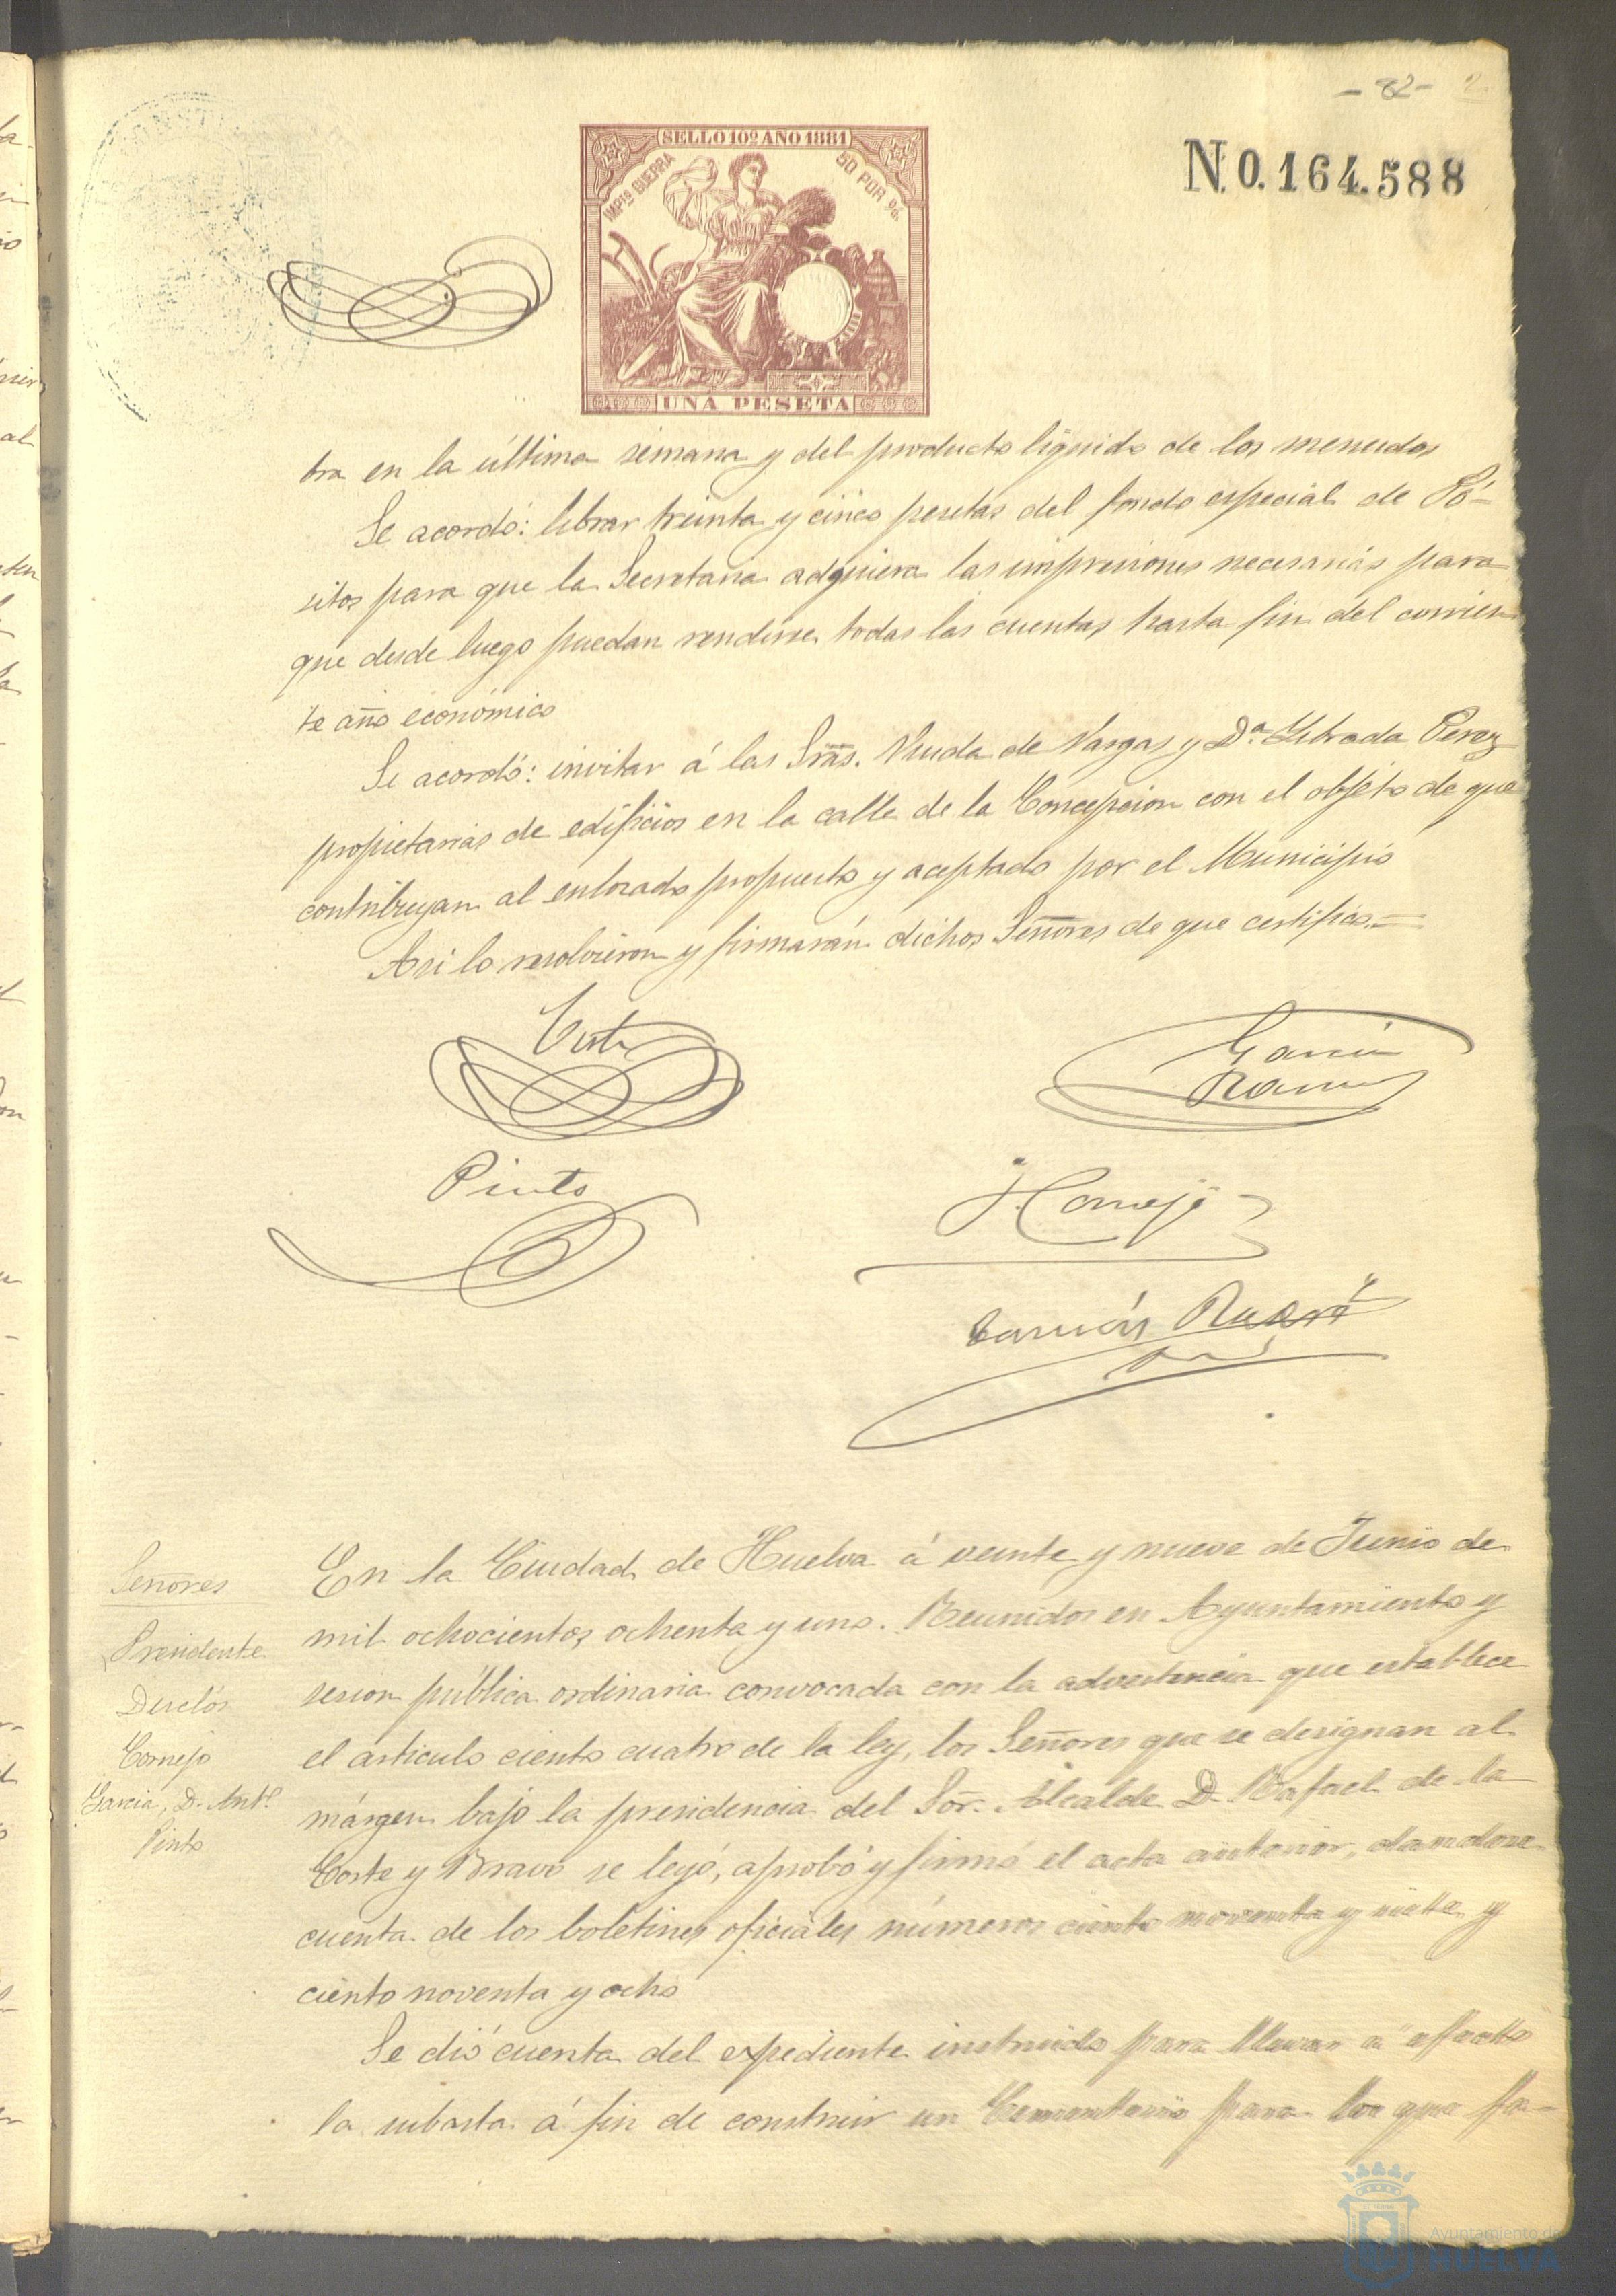 - 82 -
SELLO 10º AÑO 1881
IMPTO GUERRA
50 POR %
UNA PESETA
N.0.164.588
tra en la última semana y del producto líquido de los menudos
Se acordó: librar treinta y cinco pesetas del fondo especial de Pó=
sitos para que la Secretaria adquiera las impresiones necesarias para
que desde luego puedan rendirse todas las cuentas hasta fin del corrien
te año económico
Se acordó: invitar á las Sras. Viuda de Vargas y Dª Librada Perez
propietarias de edificios en la calle de la Concepcion con el objeto de que
contribuyan al enlosado propuesto y aceptado por el Municipio
Asi lo resolvieron y firmarán dichos Señores de que certifico.=
Corte
Garcia
Ramos
Pinto
Cornejo
Señores
Presidente
Desclós
Cornejo
Garcia, D. Antº
Pinto
En la Ciudad de Huelva á veinte y nueve de Junio de
mil ochocientos ochenta y uno. Reunidos en Ayuntamiento y
sesion pública ordinaria convocada con la advertencia que establece
el articulo ciento cuatro de la ley, los Señores que se designan al
márgen bajo la presidencia del Sor. Alcalde D. Rafael de la
Corte y Bravo se leyó, aprobó y firmó el acta anterior, dandose
cuenta de los boletines oficiales números ciento noventa y siete y
ciento noventa y ocho
Se dió cuenta del expediente instruido para llevar á efecto
la subasta á fin de construir un Cementerio para los que fa-
Ayuntamiento de
HUELVA